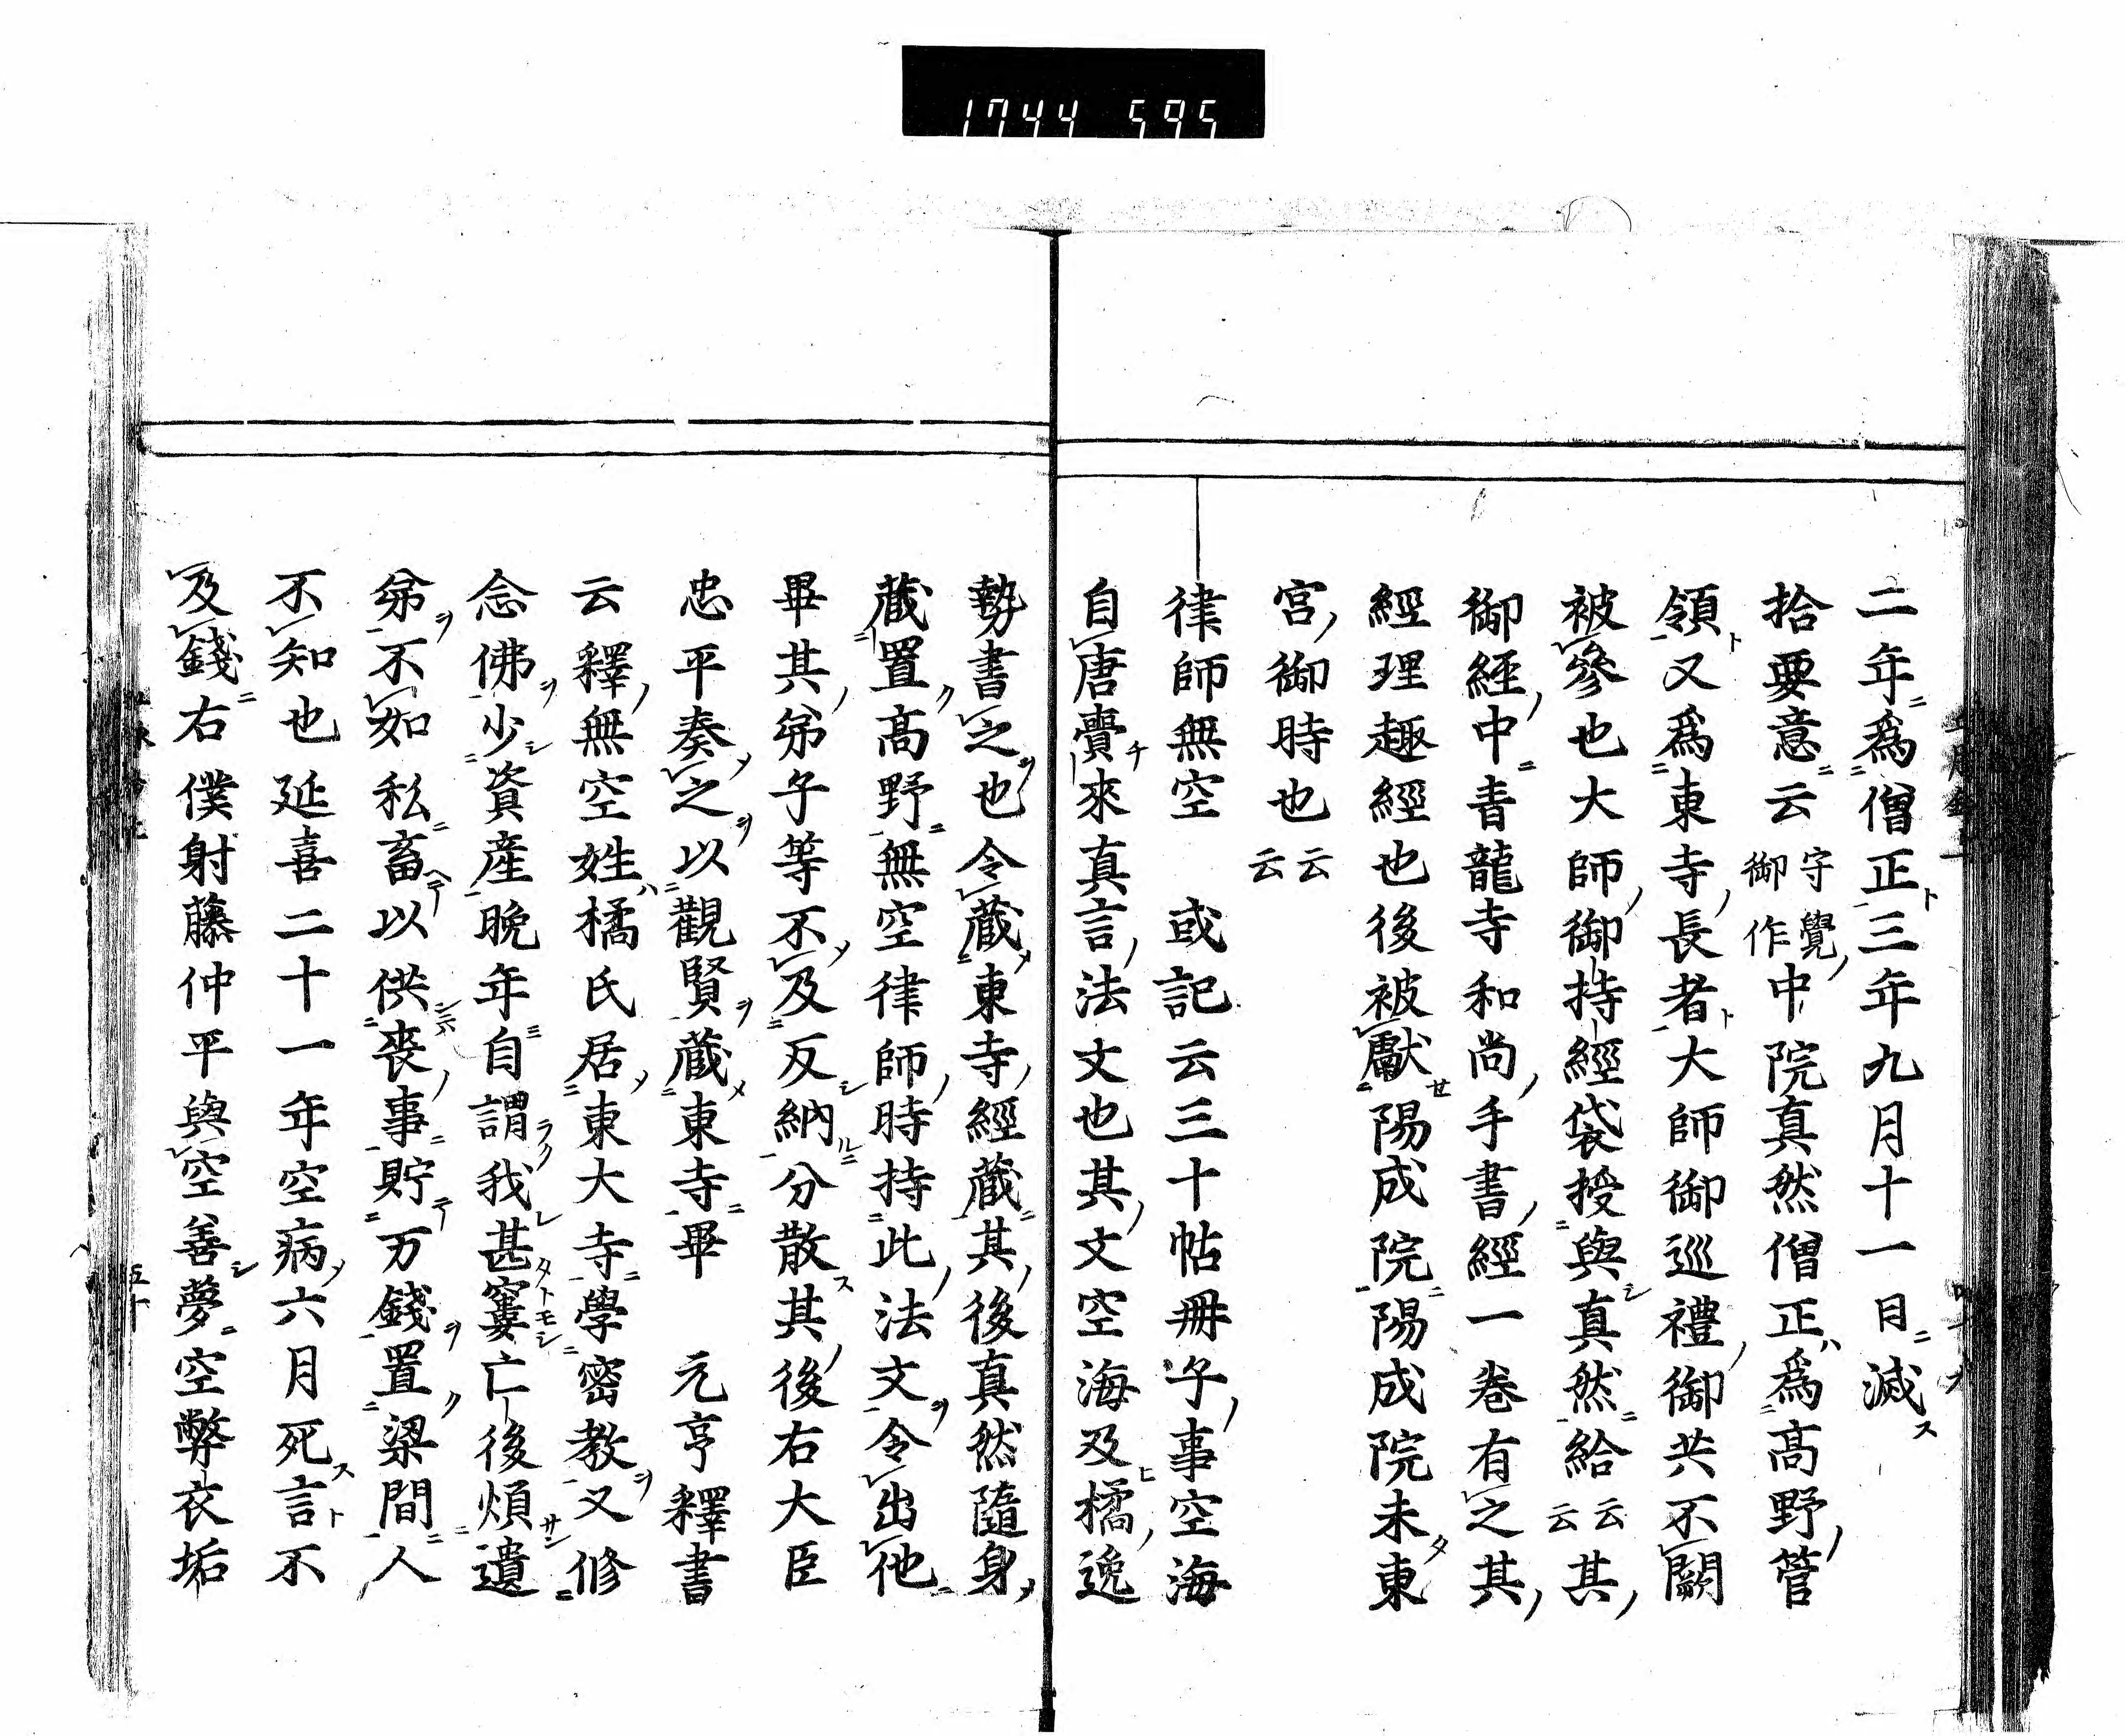 1744 595
二年爲僧正三年九月十一日滅
拾要意云守覺御作中院真然僧正爲髙野管
領又爲東寺長者大師御巡禮御共不闕
被參也大師御持經袋授與真然給云云其
御經中青龍寺和尚手書經一巻有之其
經理趣經也後被獻陽成院陽成院未東
宮御時也云云
律師無空　或記云三十帖冊子事空海
自唐賷來真言法文也其文空海及橘逸
勢書之也令蔵東寺經蔵其後真然隨身
蔵置髙野無空律師時持此法文令出他
畢其弟子等不及反納分散其後右大臣
忠平奏之以觀賢蔵東寺畢　元亨釋書
云釋無空姓橘氏居東大寺學密教又修
念佛少資産晩年自謂我甚窶亡後煩遺
弟不如私畜以供喪事貯万錢置梁間人
不知也延喜二十一年空病六月死言不
及錢右僕射藤仲平與空善夢空弊衣垢